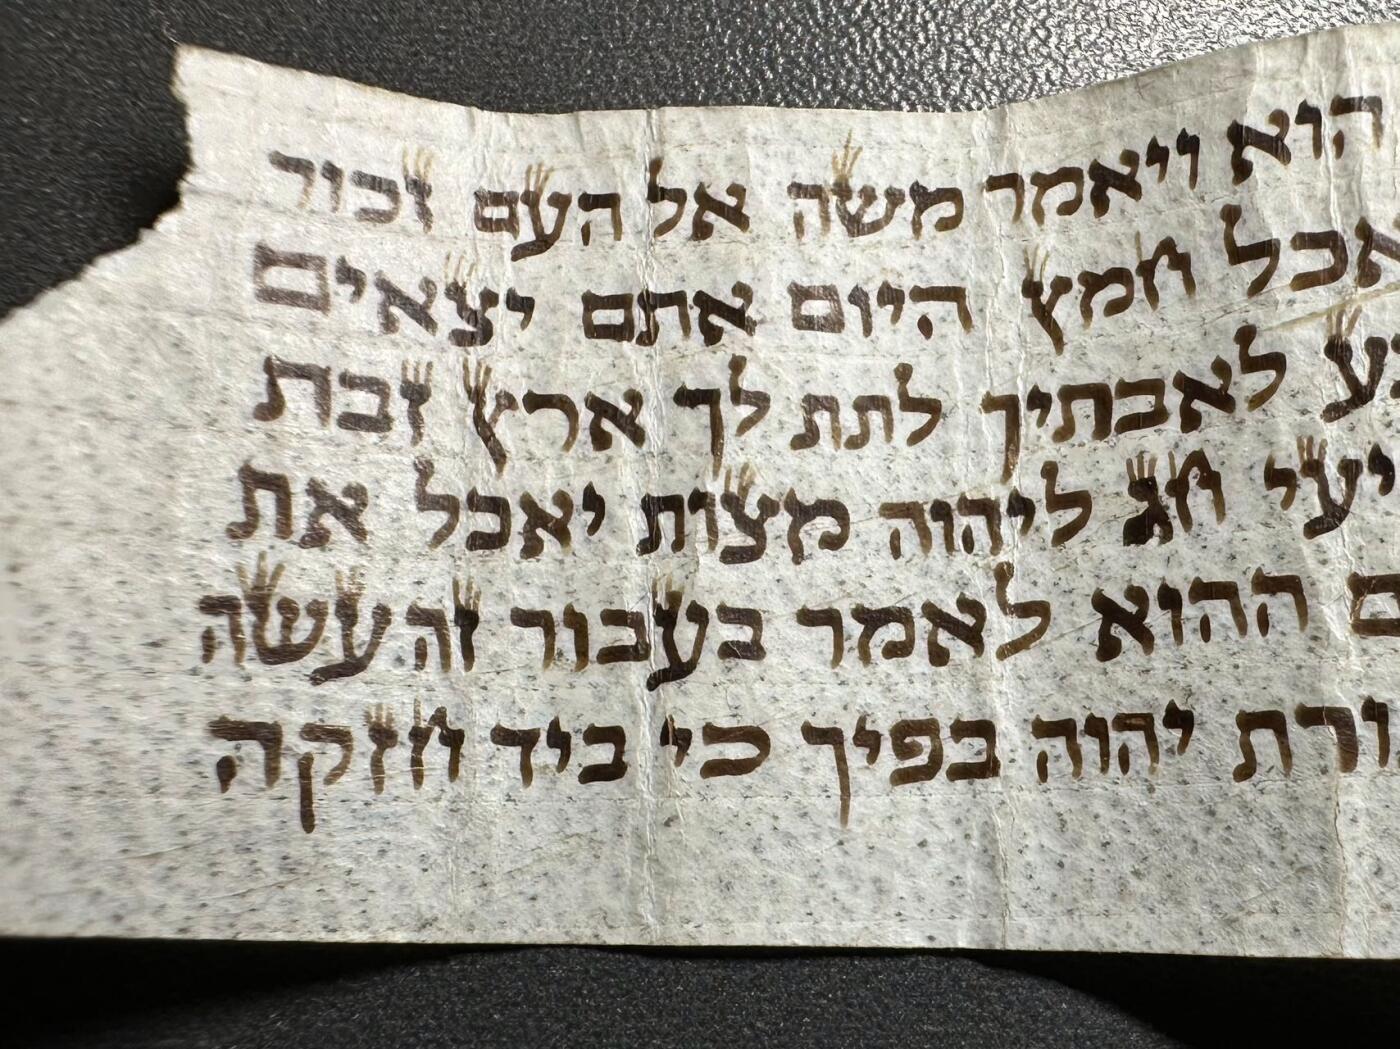 הוא ויאמר משה אל העם זכור
אכל חמץ היום אתם יצאים
ע לאבתיך לתת לך ארץ זבת
יעי חג ליהוה מצות יאכל את
ם ההוא לאמר בעבור זה עשה
ורת יהוה בפיך כי ביד חזקה